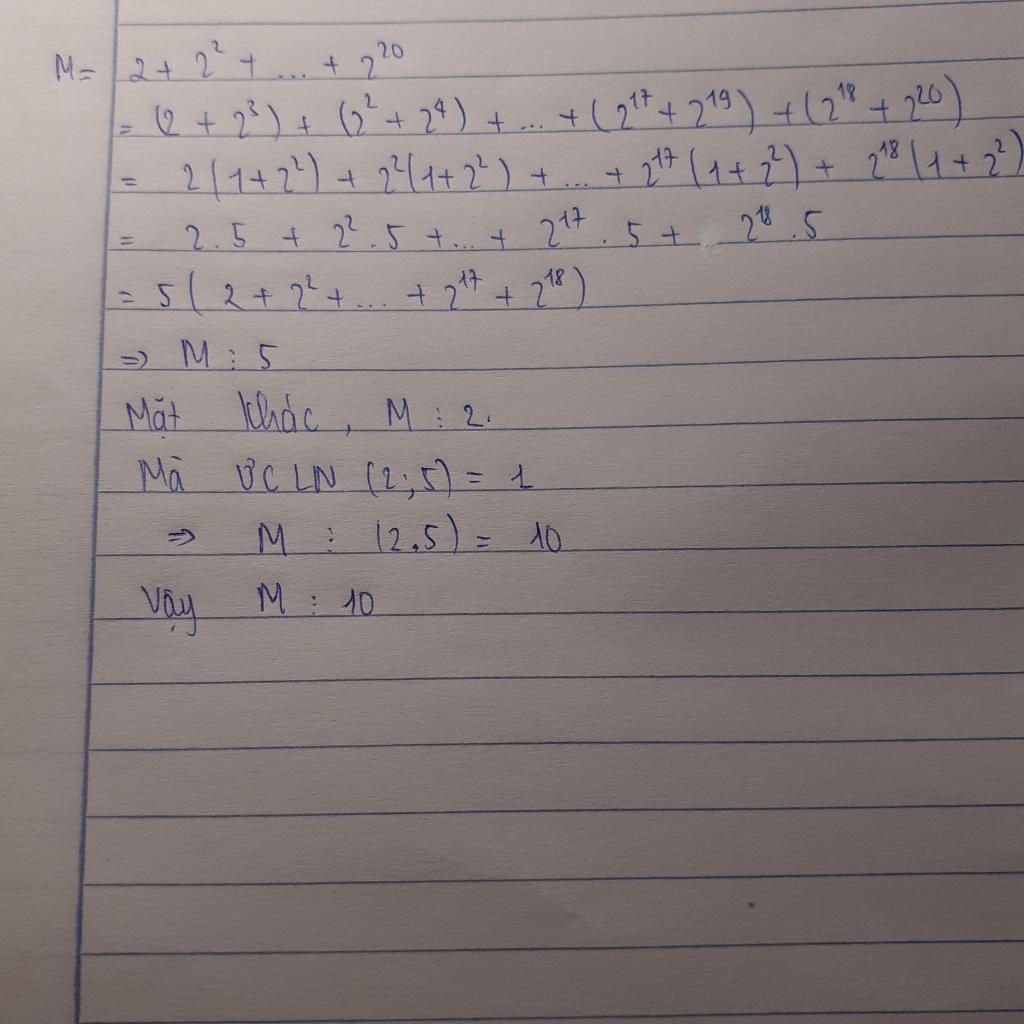 M= 2 + 2² + ... + 2²⁰
= (2 + 2³) + (2² + 2⁴) + ... + (2¹⁷ + 2¹⁹) + (2¹⁸ + 2²⁰)
= 2(1+2²) + 2²(1+2²) + ... + 2¹⁷(1+2²) + 2¹⁸(1+2²)
= 2.5 + 2².5 + ... + 2¹⁷.5 + 2¹⁸.5
= 5(2 + 2² + ... + 2¹⁷ + 2¹⁸)
=> M ⋮ 5
Mặt khác, M ⋮ 2.
Mà ƯCLN (2;5) = 1
=> M ⋮ (2.5) = 10
Vậy M ⋮ 10